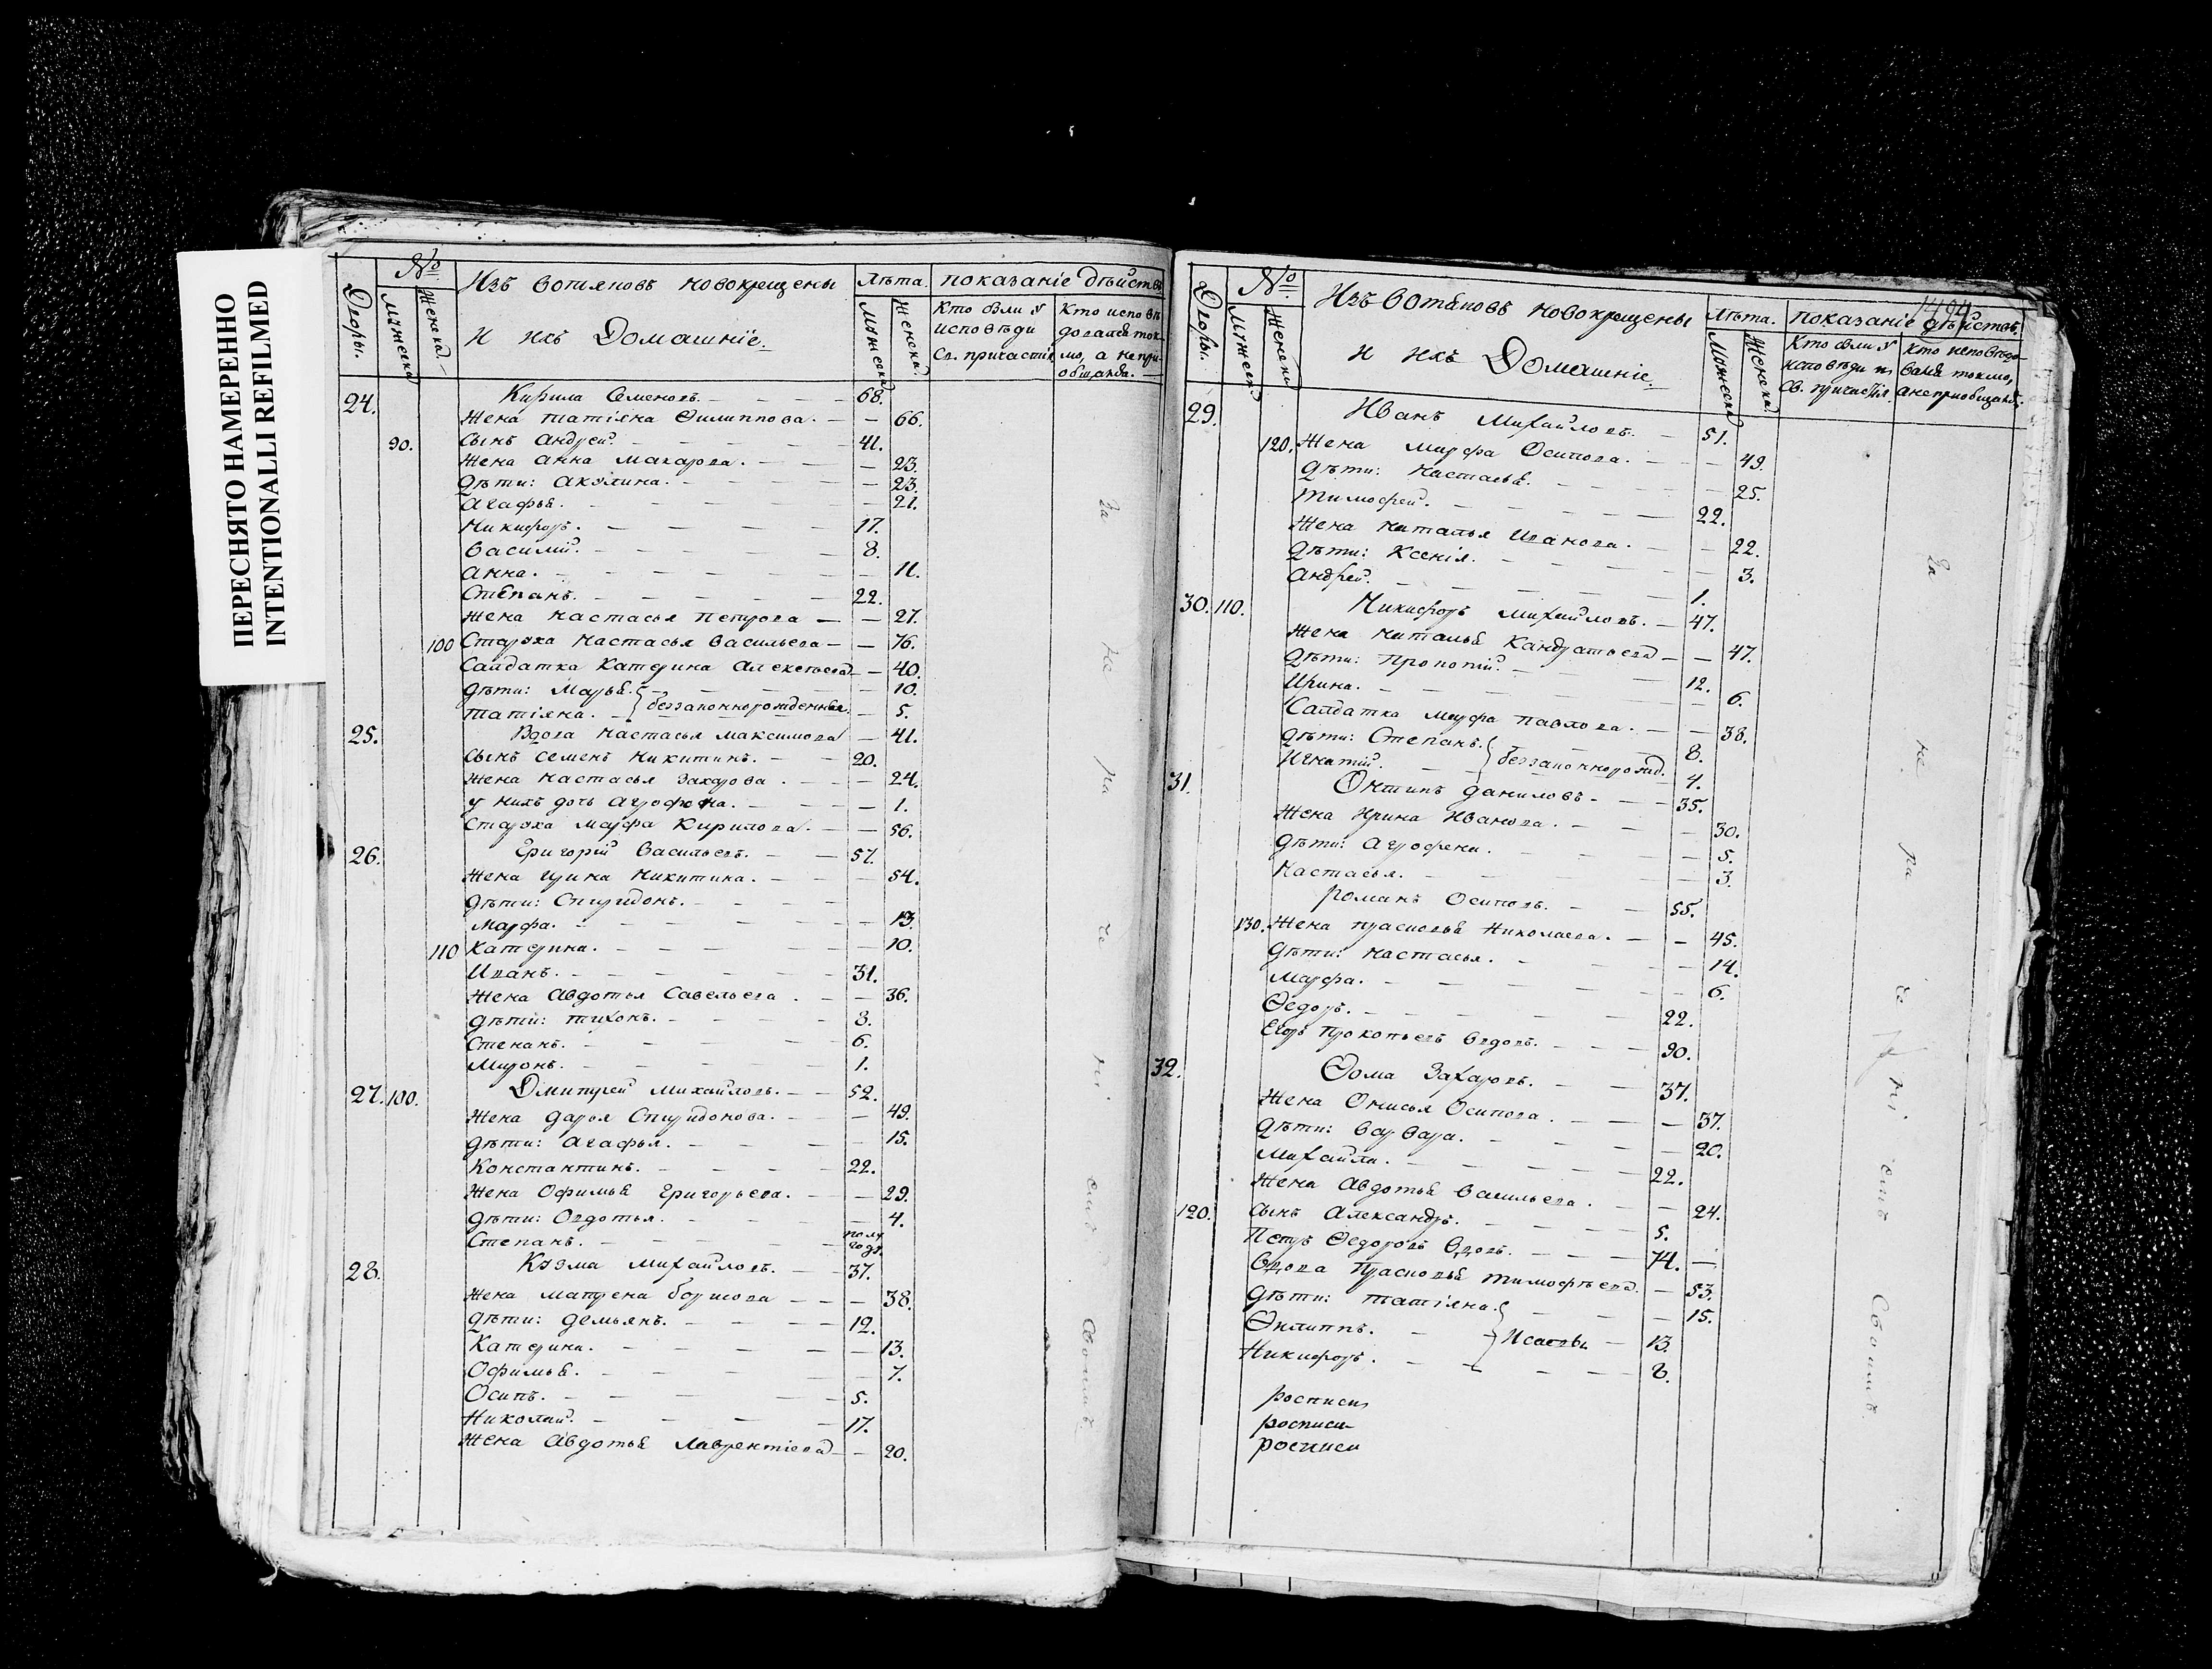 ПЕРЕСНЯТО НАМЕРЕННО
INTENTIONALLI REFILMED
Дворы. № Изъ вотяковъ новокрещены Лѣта. показаніе дѣйствъ
Мужеска Женска и ихъ Домашніе. Мужеска Женска. Кто были у исповѣди Св. причастія Кто исповѣдовался ток мо, а непріобщался.
24. Кирила Семеновъ. 68.
Жена татіяна Филиппова. 66.
90. Сынъ андрей. 41.
Жена анна макарова. 23.
Дѣти: акулина. 23.
агафья. 21.
Никифоръ. 17.
василий. 8.
анна. 11.
Степанъ. 22.
Жена Настасья петрова 27.
100 Старуха Настасья васильева 76.
Салдатка Катерина алексѣева 40.
дѣти: Марья. 10.
татіяна. беззаконнорожденныя. 5.
25. Вдова Настасья максимова 41.
Сынъ Семенъ Никитинъ. 20.
Жена Настасья Захарова. 24.
у нихъ дочь агрофена. 1.
Старуха марфа Кирилова. 56.
26. Григорій васильевъ. 57.
Жена ирина Никитина. 54.
дѣти: Спиридонъ.
Марфа. 13.
110 Катерина. 10.
Иванъ. 31.
Жена авдотья Савельева. 36.
дѣти: тихонъ. 3.
Степанъ. 6.
Миронъ. 1.
27. 100. Дмитрей Михайловъ. 52.
Жена дарья Спиридонова. 49.
дѣти: агафья. 15.
Константинъ. 22.
Жена Офимья Григорьева. 29.
дѣти: Овдотья. 4.
Степанъ. полу года.
28. Кузма михайловъ. 37.
Жена матрена борисова 38.
дѣти: демьянъ. 12.
Катерина. 13.
Офимья. 7.
Осипъ. 5.
Николай. 17.
Жена авдотья лаврентіева 20.
За не ра че ні емъ Своимъ.
Дворы. № Изъ вотяковъ новокрещены Лѣта. показаніе дѣйствъ.
Мужеска Женска и ихъ Домашніе. Мужеска Женска. Кто были у исповѣди и Св. причастія. Кто исповѣдовался токмо, а непріобщался.
29. Иванъ Михайловъ. 51.
120. Жена Марфа Осипова. 49.
дѣти: Настасья. 25.
тимофей. 22.
Жена Наталья иванова. 22.
дѣти: Ксенія. 3.
андрей. 1.
30. 110. Никифоръ михайловъ. 47.
Жена Наталья Кандратьева 47.
дѣти: Прокопій. 12.
Ирина. 6.
Салдатка марфа павлова. 38.
дѣти: Степанъ. 8.
Игнатій. беззаконнорожд. 4.
31. Онтипъ даниловъ. 35.
Жена Ирина Иванова. 30.
дѣти: агрофена. 5.
Настасья. 3.
романъ Осиповъ. 55.
130. Жена прасковья Николаева. 45.
дѣти: Настасья. 14.
марфа. 6.
Ѳедоръ. 22.
Егоръ прокопьевъ вдовъ. 90.
32. Ѳома Захаровъ. 37.
Жена Онисья Осипова. 37.
дѣти: варвара. 20.
Михайла. 22.
Жена авдотья васильева. 24.
120. Сынъ александръ. 5.
Петръ Ѳедоровъ вдовъ. 74.
вдова Прасковья тимофѣева. 53.
дѣти: татіяна. 15.
Филиппъ. Исаевы 13.
Никифоръ. 8.
росписи
росписи
росписи
За не ра че ні емъ Своимъ.